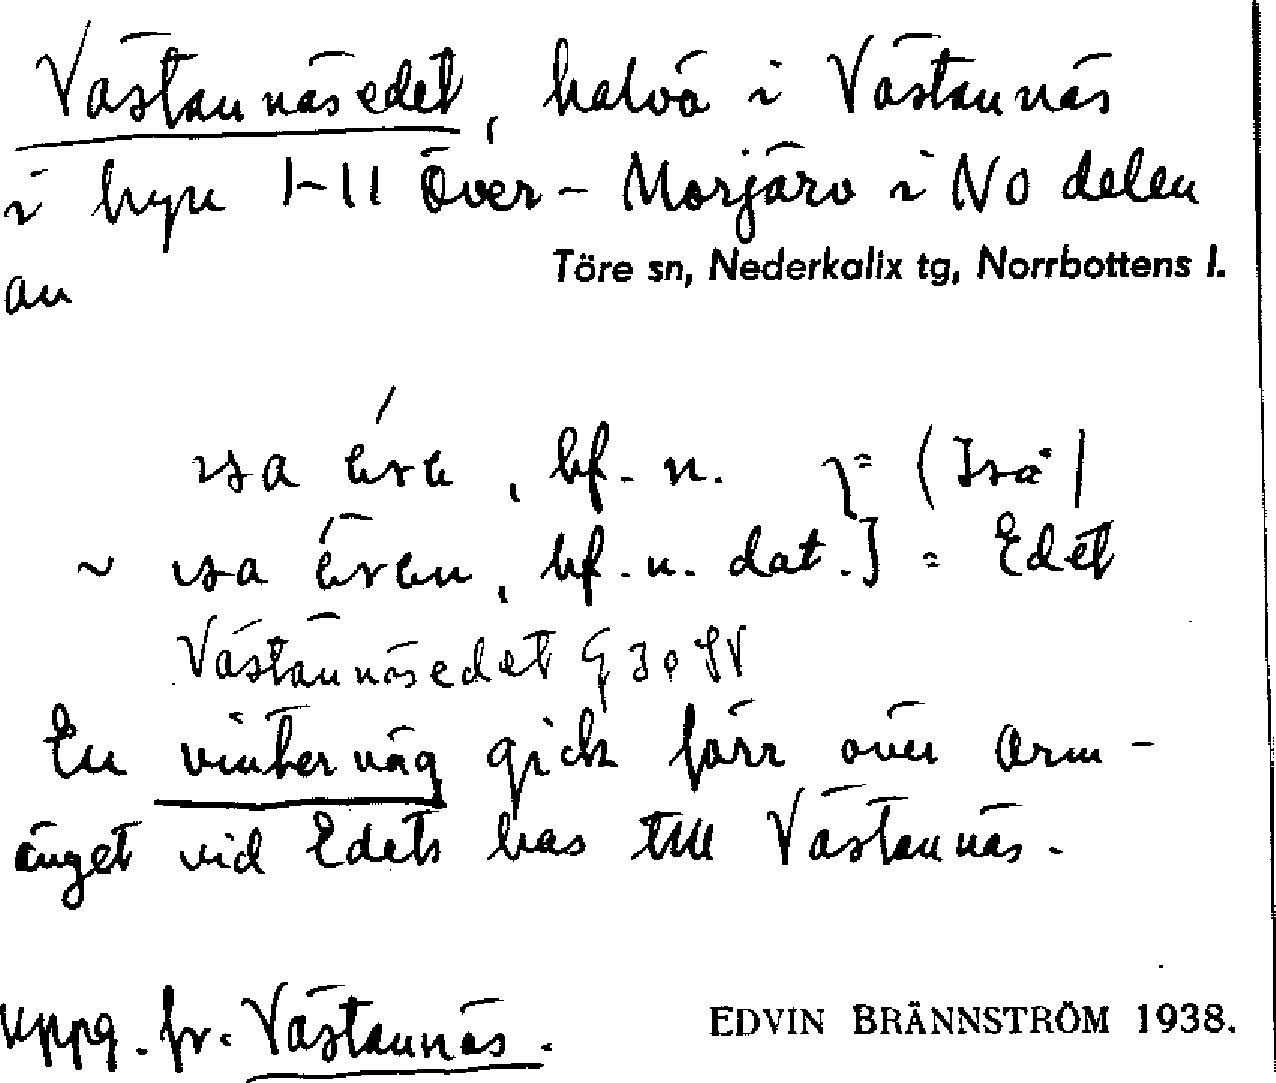 Västannäsedet, halvö i Västannäs
i byn 1-11 Över-Morjärv i NO delen
av
Töre sn, Nederkalix tg, Norrbottens l.
bf. n.
~ bf. n. dat.] = Edet
Västannäsedet
En vinterväg gick förr över Orm-
änget vid Edets bas till Västannäs.
Uppg. fr. Västannäs.
EDVIN BRÄNNSTRÖM 1938.